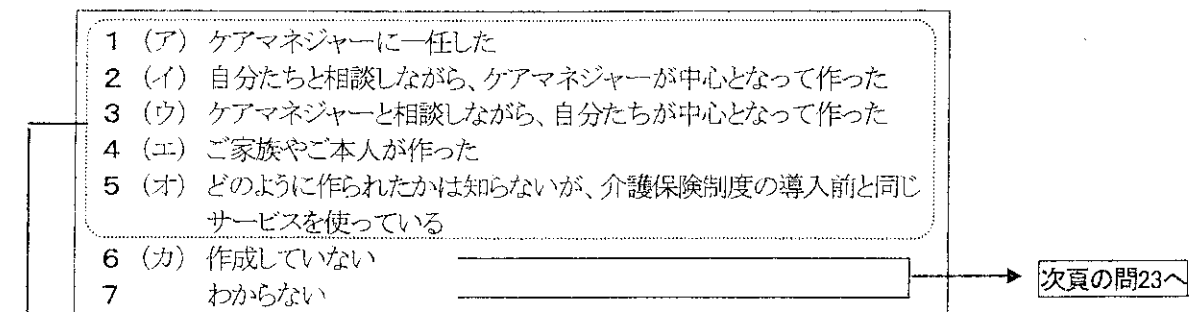 1 (ア) ケアマネジャーに一任した
2 (イ) 自分たちと相談しながら、ケアマネジャーが中心となって作った
3 (ウ) ケアマネジャーと相談しながら、自分たちが中心となって作った
4 (エ) ご家族やご本人が作った
5 (オ) どのように作られたかは知らないが、介護保険制度の導入前と同じ
サービスを使っている
6 (カ) 作成していない
7 わからない
次頁の問23へ